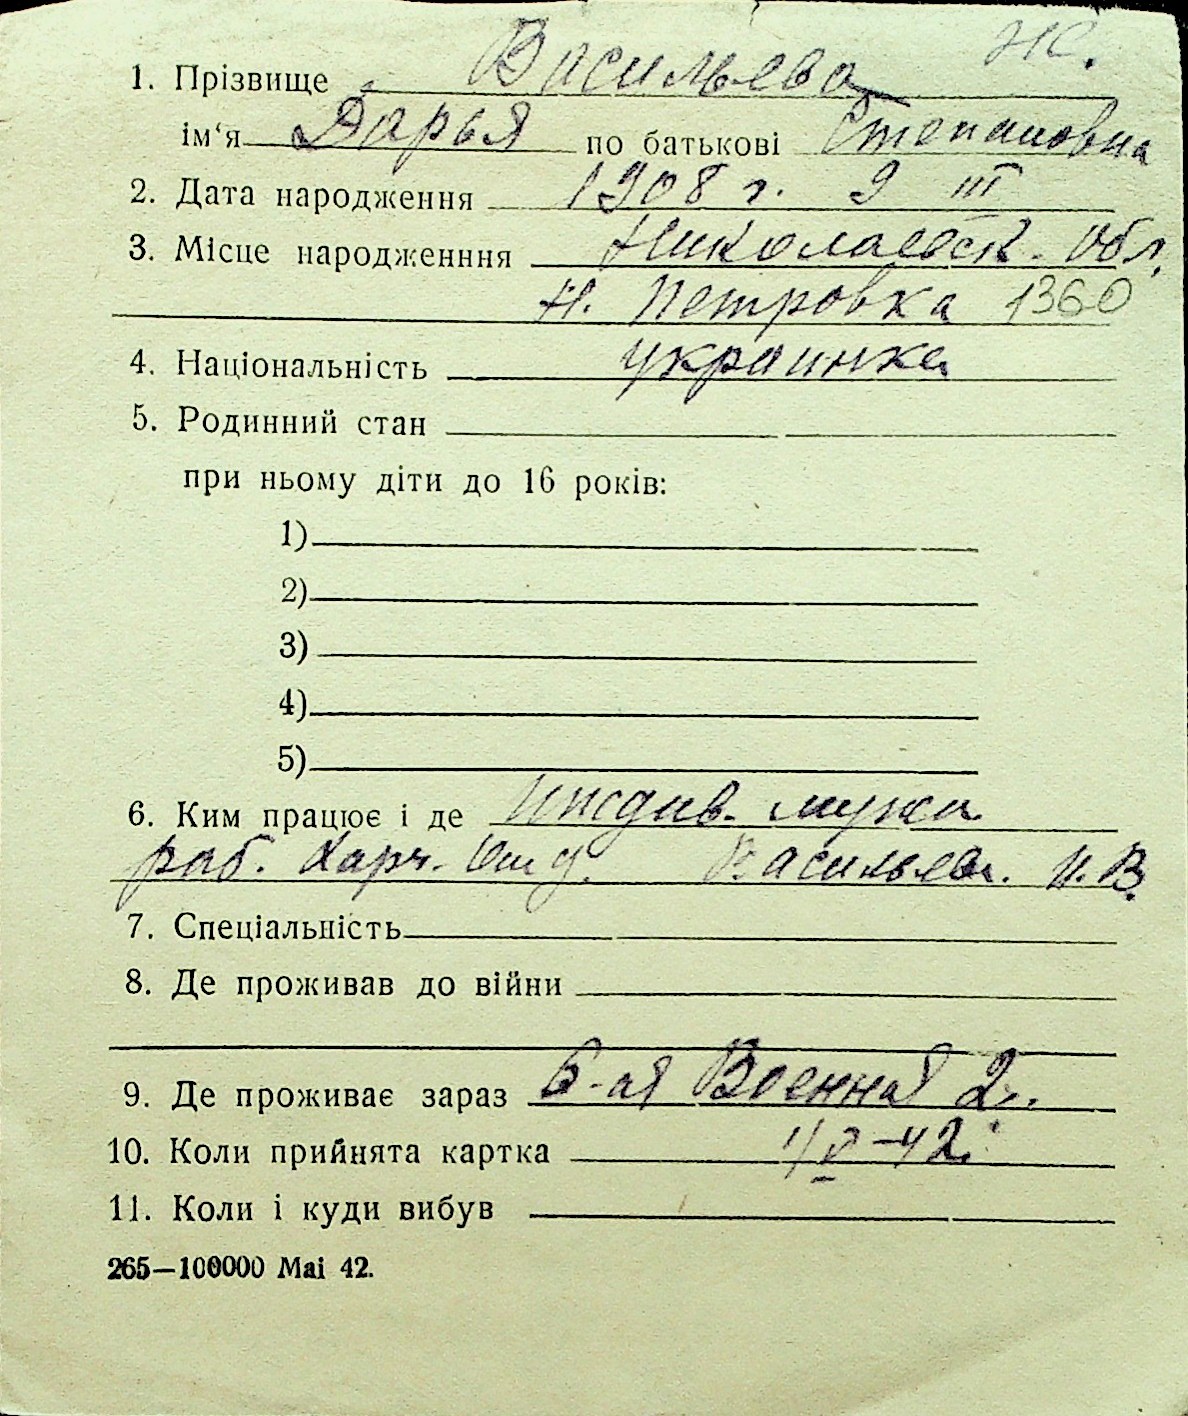 Ж.
1. Прізвище Васильева
ім‘я Дарья по батькові Степановна
2. Дата народження 1908 г. 9 III
3. Місце народженння Николаевск. обл.
Н. Петровка 1360
4. Національність украинка
5. Родинний стан
при ньому діти до 16 років:
1)
2)
3)
4)
5)
6. Ким працює і де иждив. мужа
раб. Харч. Васильева. И. В.
7. Спеціальність
8. Де проживав до війни
9. Де проживає зараз 6-ая Военная 2.
10. Коли прийнята картка -42.
11. Коли і куди вибув
265—100000 Mai 42.